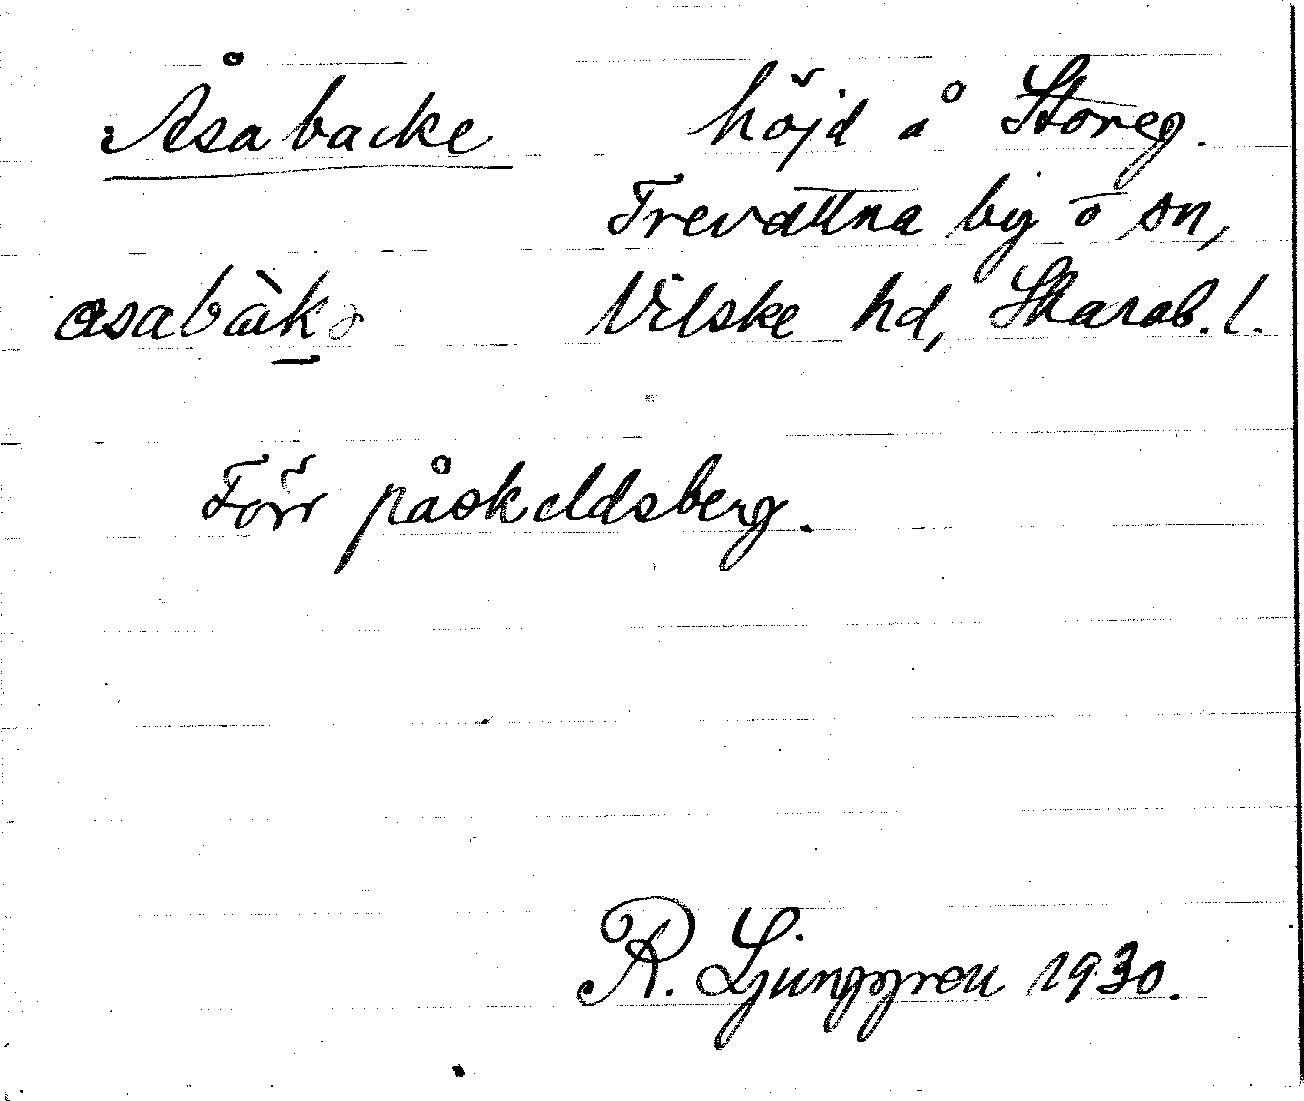 Åsabacke höjd å Storeg.
Trevattna by o sn,
asabàkə Vilske hd, Skarab. l.
Förr påskeldsberg.
R. Ljunggren 1930.